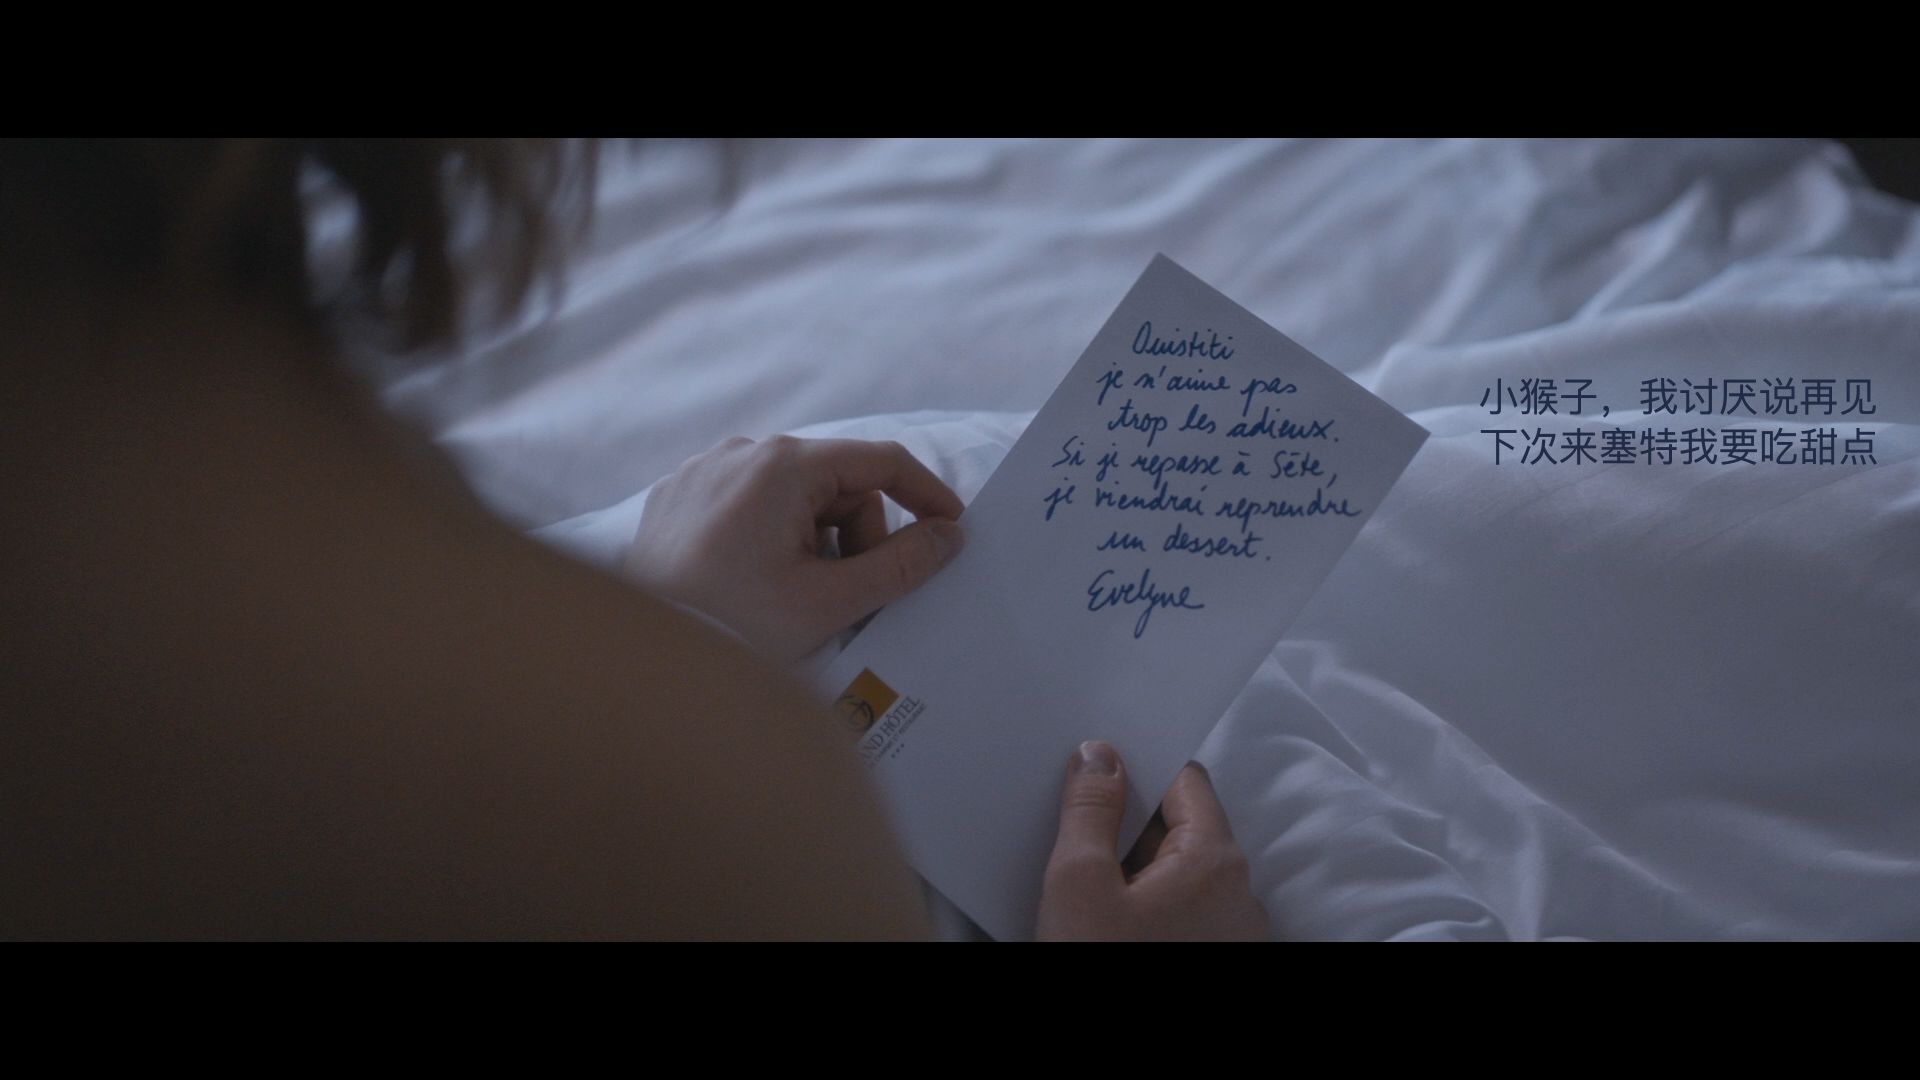 Ouistiti
je n'aime pas
trop les adieux.
Si je repasse à Sète,
je viendrai reprendre
un dessert.
Evelyne
小猴子，我讨厌说再见
下次来塞特我要吃甜点
HÔTEL